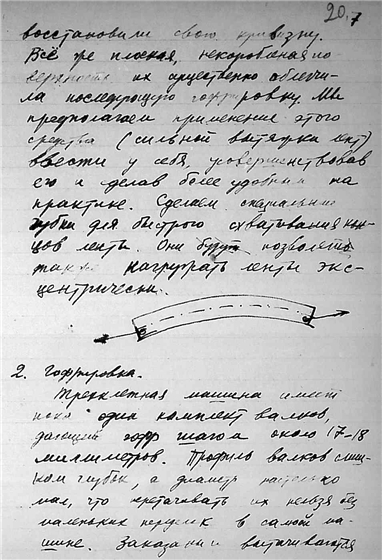 20.7
восстановили свою кривизну.
Всё же плоская, некоробленая по
верхность их существенно облегчи-
ла последующую гофрировку. Мы
предполагаем применение этого
средства (сильной вытяжки лент)
ввести у себя, усовершенствовав
его и сделав более удобным на
практике. Сделаем специальные
губки для быстрого схватывания кон-
цов ленты. Они будут позволять
также нагружать ленты экс-
центрически.
2. Гофрировка.
Трехклетная машина имеет
пока один комплект валков,
дающий гофр шагом около 17-18
миллиметров. Профиль валков слиш-
ком глубок, а диаметр настолько
мал, что перетачивать их нельзя без
маленьких переделок в самой ма-
шине. Заказаны и вытачиваются